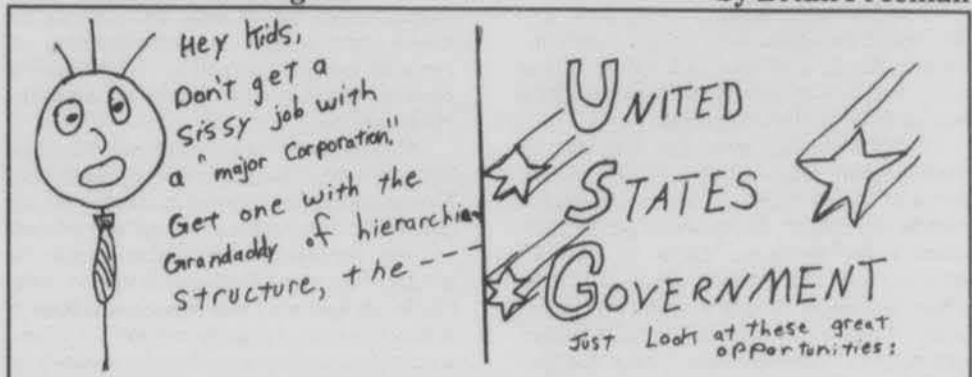 Hey Kids,
Don't get a
sissy job with
a "major Corporation."
Get one with the
Grandaddy of hierarchial
structure, the ----
UNITED
STATES
GOVERNMENT
Just Look at these great
opportunities: